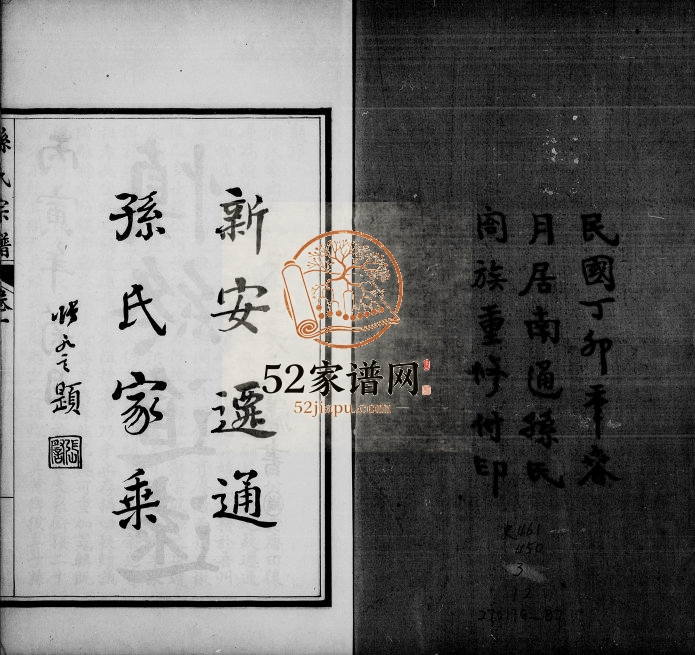 民國丁卯年
月居南通孫氏
闔族重修付印
新安遷通
孫氏家乘
題
孫氏宗譜 卷一
52家谱网
52jiapu.com
450
3
12